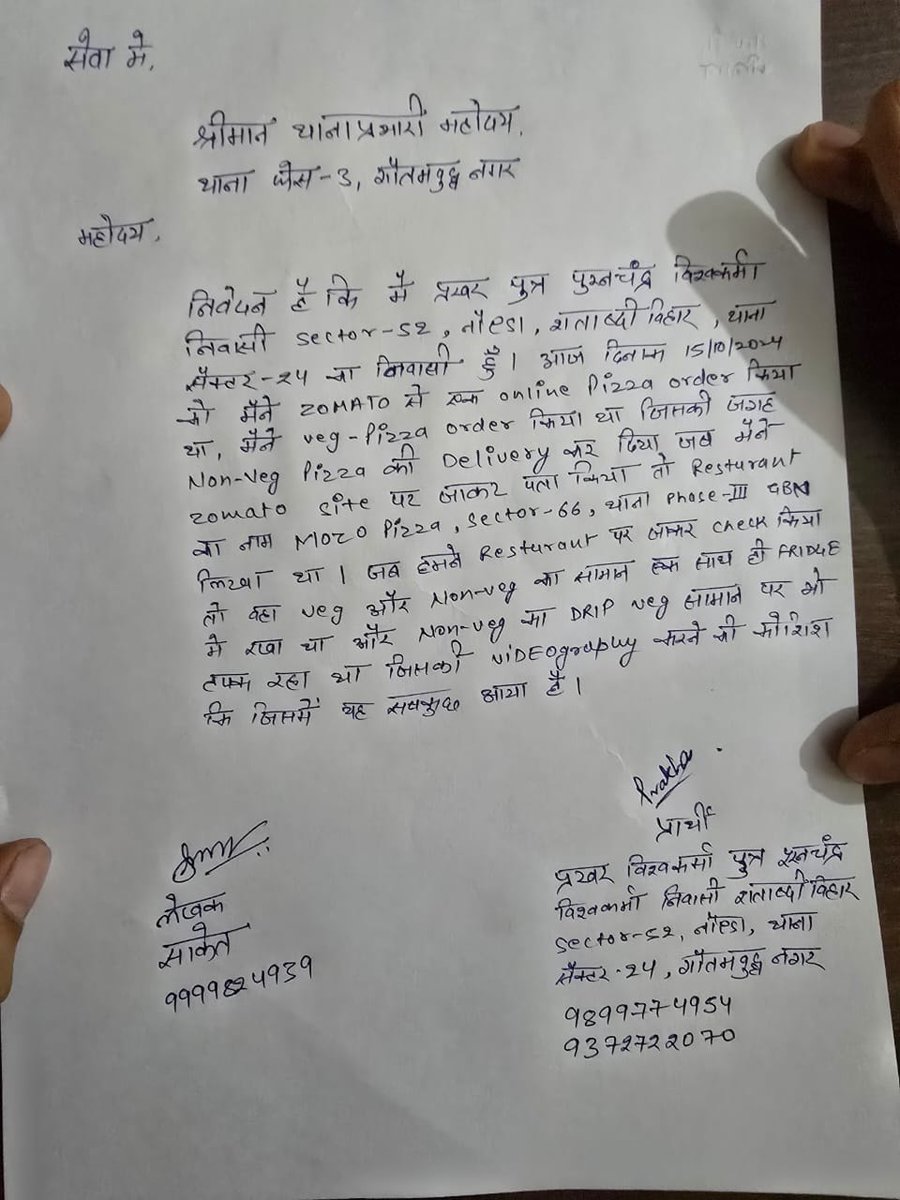 सेवा मे,
श्रीमान थाना प्रभारी महोदय,
थाना फेस-3, गौतमबुद्ध नगर
महोदय,
निवेदन है कि मै प्रखर पुत्र पुरनचंद्र विश्वकर्मा
निवासी Sector-52, नौएडा, शताब्दी विहार, थाना
सैक्टर-24 का निवासी हूँ। आज दिनाक 15/10/2024
को मैंने ZOMATO से एक online Pizza order किया
था, मैंने veg-Pizza order किया था जिसकी जगह
Non-veg Pizza की Delivery कर दिया, जब मैंने
zomato site पर जाकर पता किया तो Resturant
का नाम MOZO Pizza, Sector-66, थाना Phase-III GBN
लिखा था। जब हमने Resturant पर जाकर check किया
तो वहा veg और Non-veg का सामान एक साथ ही FRIDGE
मे रखा था और Non-veg का DRIP veg सामान पर भी
टपक रहा था जिसकी VIDEOgraphy करने की कोशिश
कि जिसमें यह सबकुछ आया है।
Prakhar
प्रार्थी
प्रखर विश्वकर्मा पुत्र पुरनचंद्र
विश्वकर्मा निवासी शताब्दी विहार
Sector-52, नौएडा, थाना
सैक्टर-24, गौतमबुद्ध नगर
9899774954
9372722070
लेखक
साकेत
9999824939